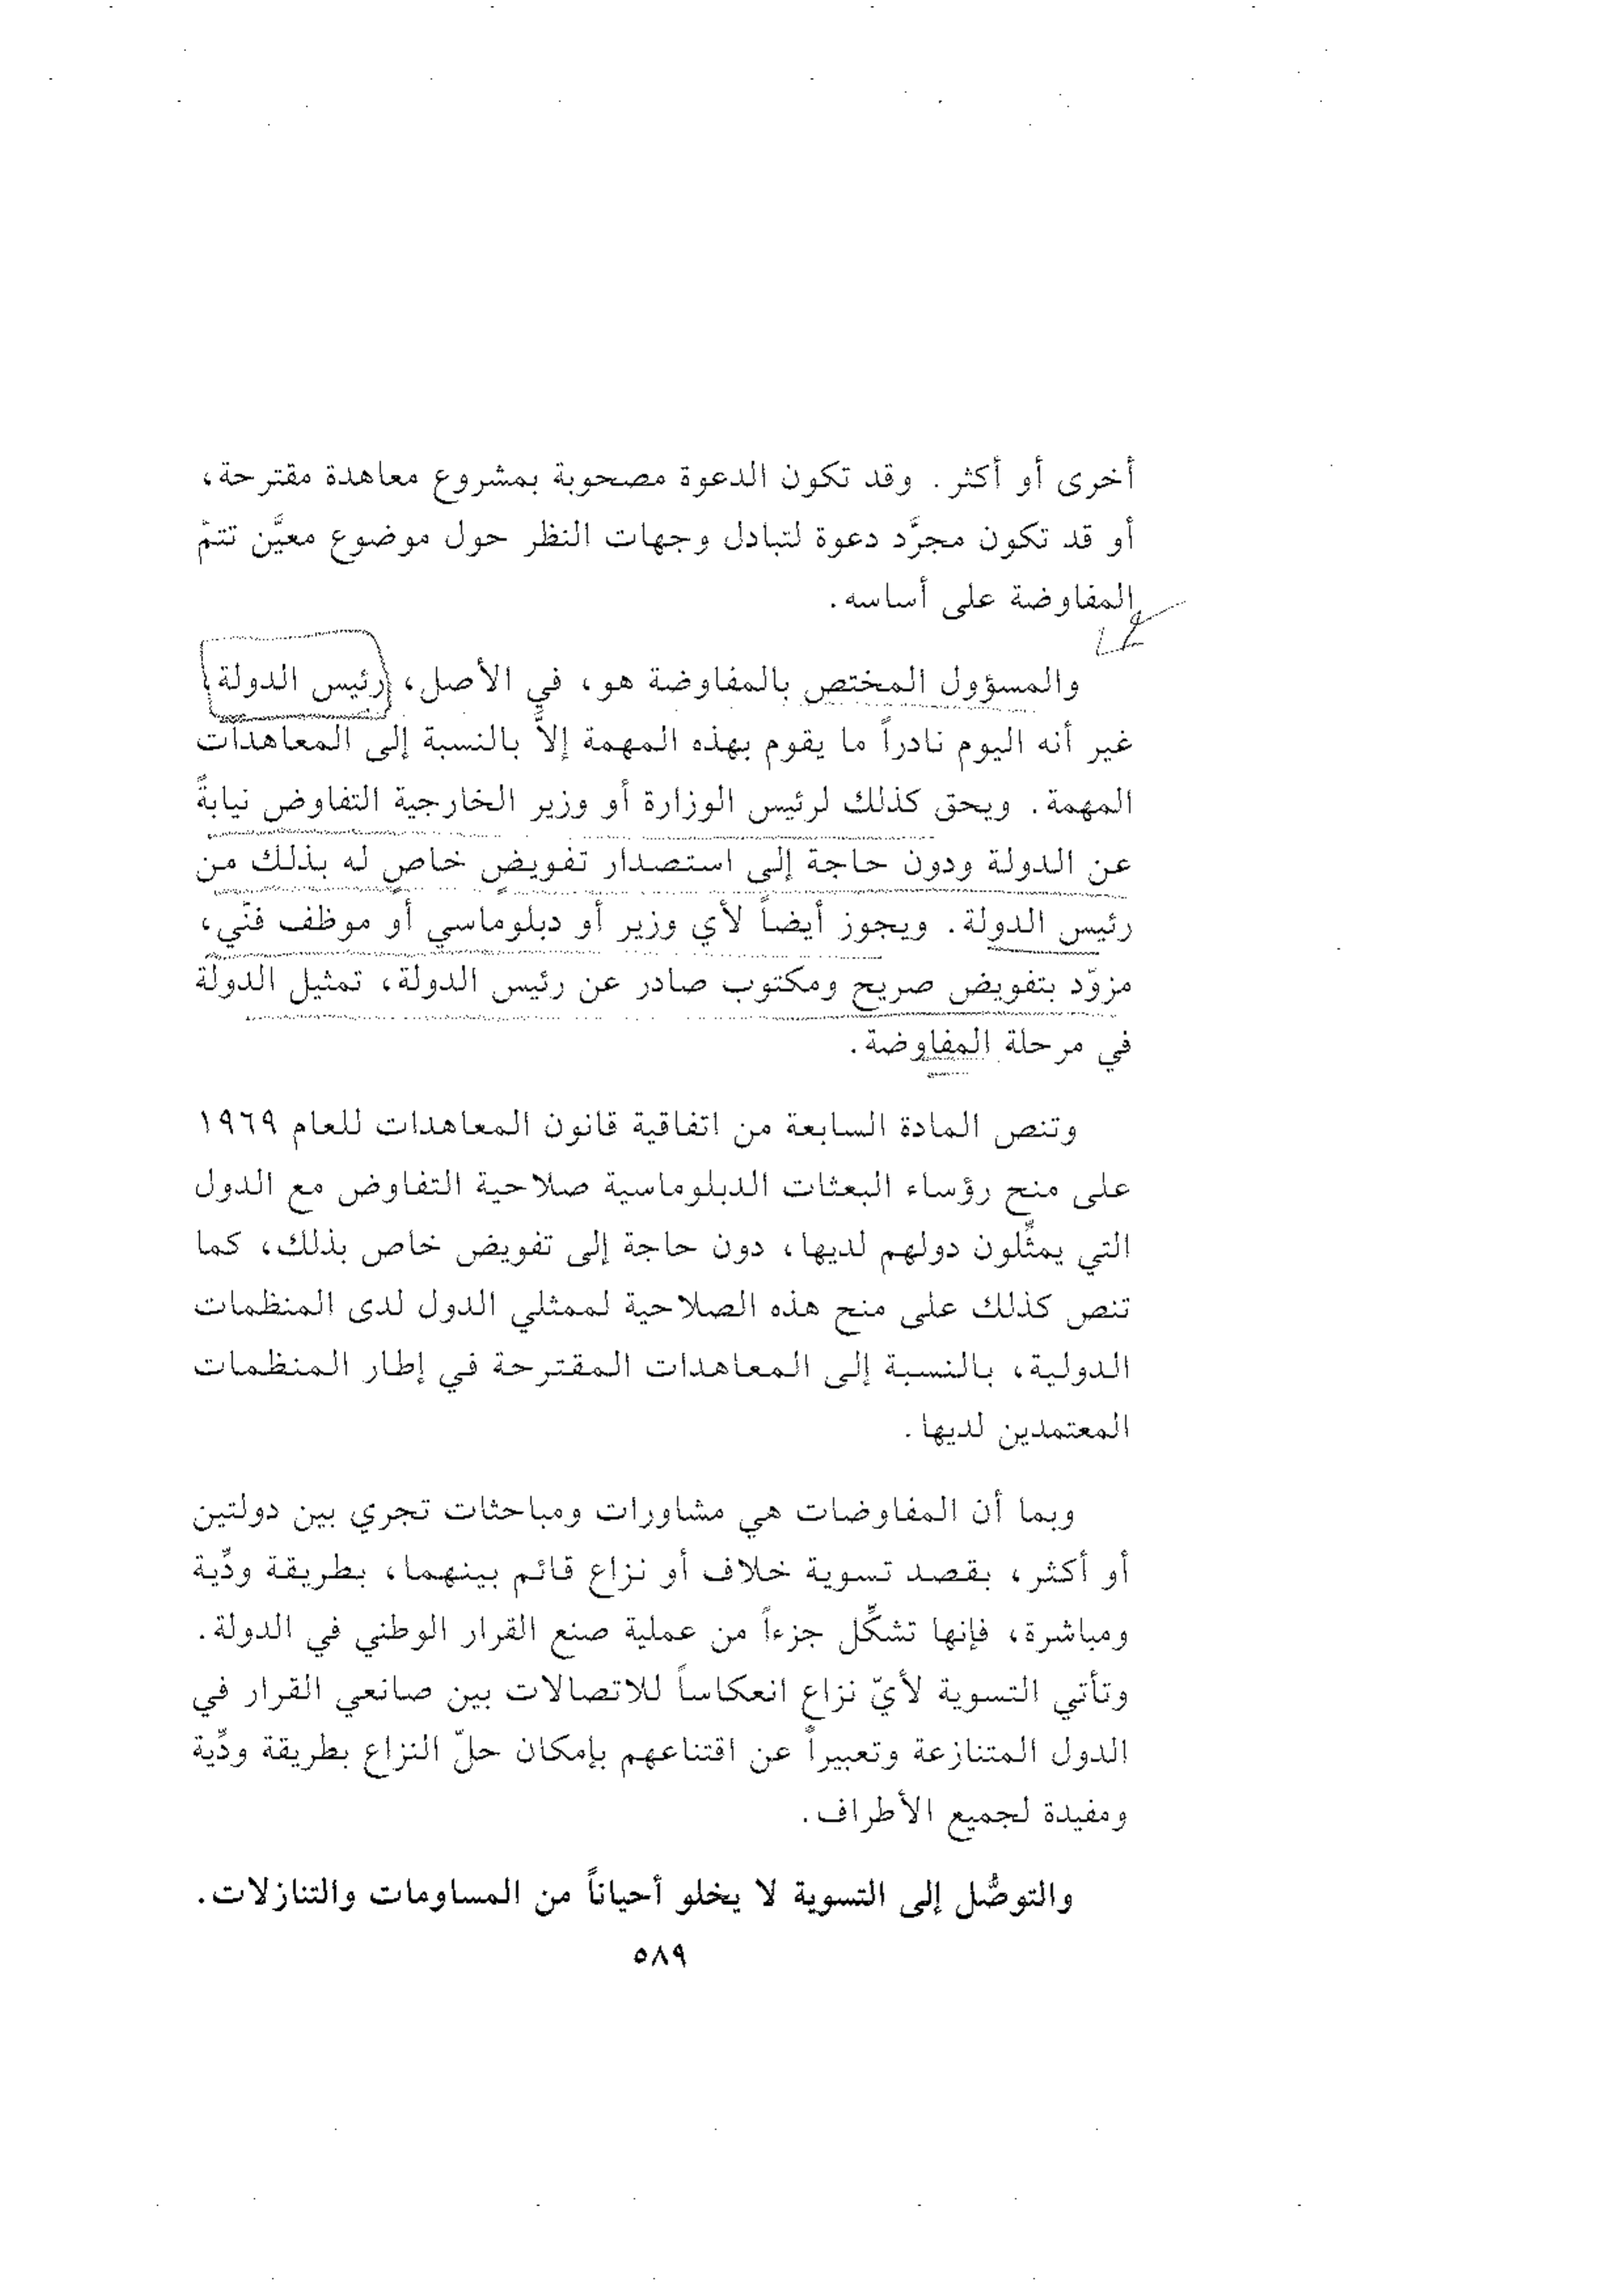 أخرى أو أكثر. وقد تكون الدعوة مصحوبة بمشروع معاهدة مقترحة،
أو قد تكون مجرَّد دعوة لتبادل وجهات النظر حول موضوع معيَّن تتمّ
المفاوضة على أساسه.
والمسؤول المختص بالمفاوضة هو، في الأصل، رئيس الدولة
غير أنه اليوم نادراً ما يقوم بهذه المهمة إلاَّ بالنسبة إلى المعاهدات
المهمة. ويحق كذلك لرئيس الوزارة أو وزير الخارجية التفاوض نيابةً
عن الدولة ودون حاجة إلى استصدار تفويض خاص له بذلك من
رئيس الدولة. ويجوز أيضاً لأي وزير أو دبلوماسي أو موظف فنّي،
مزوّد بتفويض صريح ومكتوب صادر عن رئيس الدولة، تمثيل الدولة
في مرحلة المفاوضة.
وتنص المادة السابعة من اتفاقية قانون المعاهدات للعام ١٩٦٩
على منح رؤساء البعثات الدبلوماسية صلاحية التفاوض مع الدول
التي يمثِّلون دولهم لديها، دون حاجة إلى تفويض خاص بذلك، كما
تنص كذلك على منح هذه الصلاحية لممثلي الدول لدى المنظمات
الدولية، بالنسبة إلى المعاهدات المقترحة في إطار المنظمات
المعتمدين لديها.
وبما أن المفاوضات هي مشاورات ومباحثات تجري بين دولتين
أو أكثر، بقصد تسوية خلاف أو نزاع قائم بينهما، بطريقة ودِّية
ومباشرة، فإنها تشكِّل جزءاً من عملية صنع القرار الوطني في الدولة.
وتأتي التسوية لأيّ نزاع انعكاساً للاتصالات بين صانعي القرار في
الدول المتنازعة وتعبيراً عن اقتناعهم بإمكان حلّ النزاع بطريقة ودِّية
ومفيدة لجميع الأطراف.
والتوصُّل إلى التسوية لا يخلو أحياناً من المساومات والتنازلات.
٥٨٩